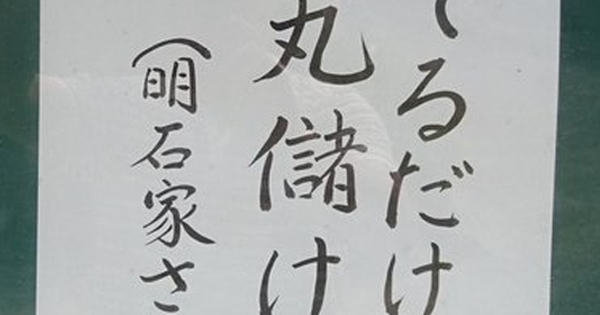 てるだけ
丸儲け
（明石家さ